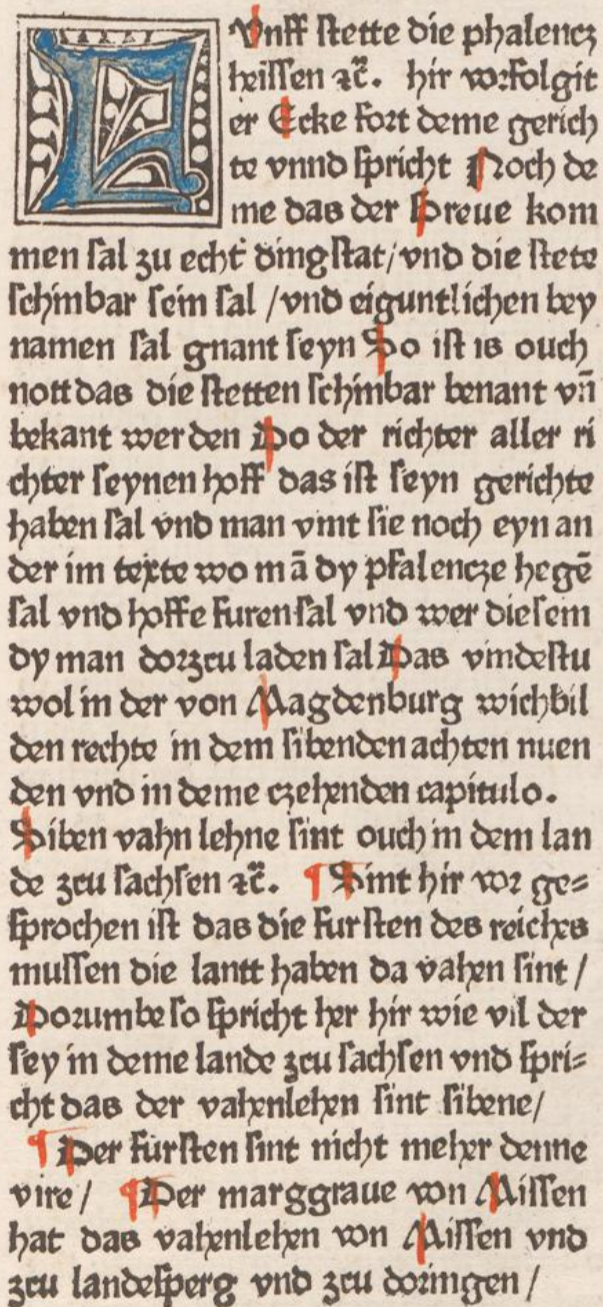 Vnff stette die phalencz
heissen ꝛc̃. hir vorfolgit
er Ecke fort deme gerich
te vnnd spricht Noch de
me das der Greue kom
men sal zu echt dingstat/vnd die stete
schimbar sein sal /vnd eiguntlichen bey
namen sal gnant seyn So ist is ouch
nott das die stetten schimbar benant vn̄
bekant werden Do der richter aller ri
chter seynen hoff das ist seyn gerichte
haben sal vnd man vint sie noch eyn an
der im texte wo mā dy pfalencze hegē
sal vnd hoffe furen sal vnd wer die sein
dy man dorzcu laden sal Das vindestu
wol in der von Magdenburg wichbil
den rechte in dem sibenden achten nuen
den vnd in deme czehenden capitulo.
Siben vahn lehne sint ouch in dem lan
de zcu sachsen ꝛc̃. ¶ Sint hir vor ge⸗
sprochen ist das die fursten des reichs
mussen die lantt haben da vahen sint /
Dorumbe so spricht her hir wie vil der
sey in deme lande zcu sachsen vnd spri⸗
cht das der vahenlehen sint sibene/
¶ Der fursten sint nicht meher denne
vire / ¶ Der marggraue von Missen
hat das vahenlehen von Missen vnd
zcu landesperg vnd zcu doringen /